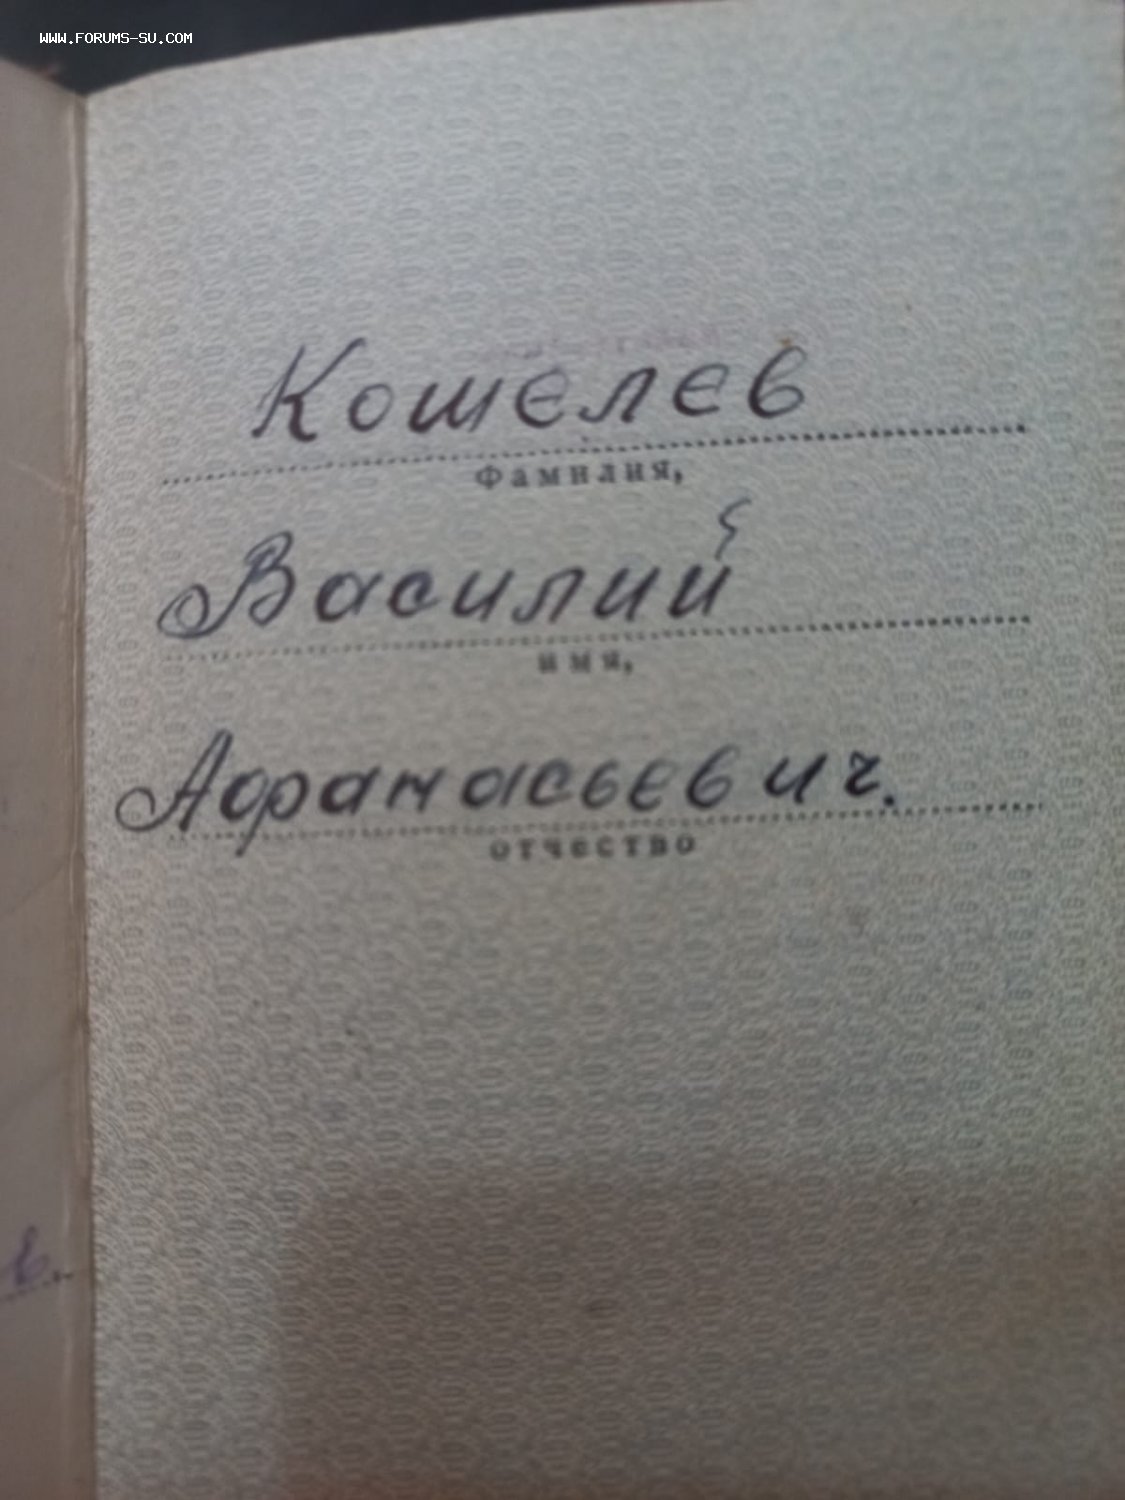 WWW.FORUMS-SU.COM
Кошелев
Фамилия,
Василий
имя,
Афанасьевич.
отчество